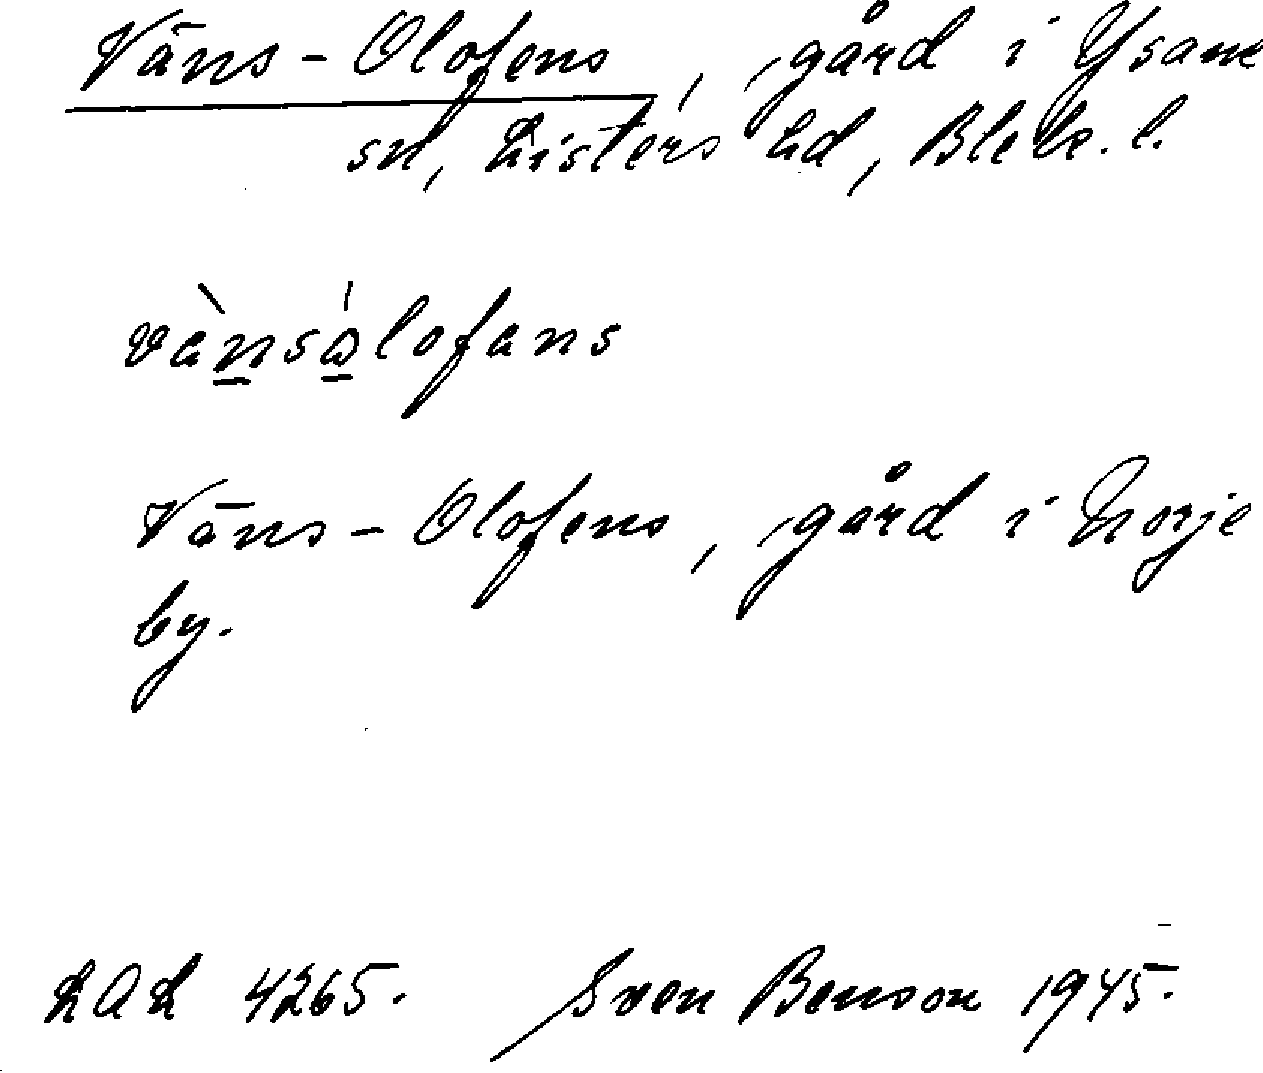 Väns-Olofens, gård i Ysane
sn, Listers hd, Blek. l.
vànsólofans
Väns-Olofens, gård i Norje
by.
LAL 4265. Sven Benson 1945.